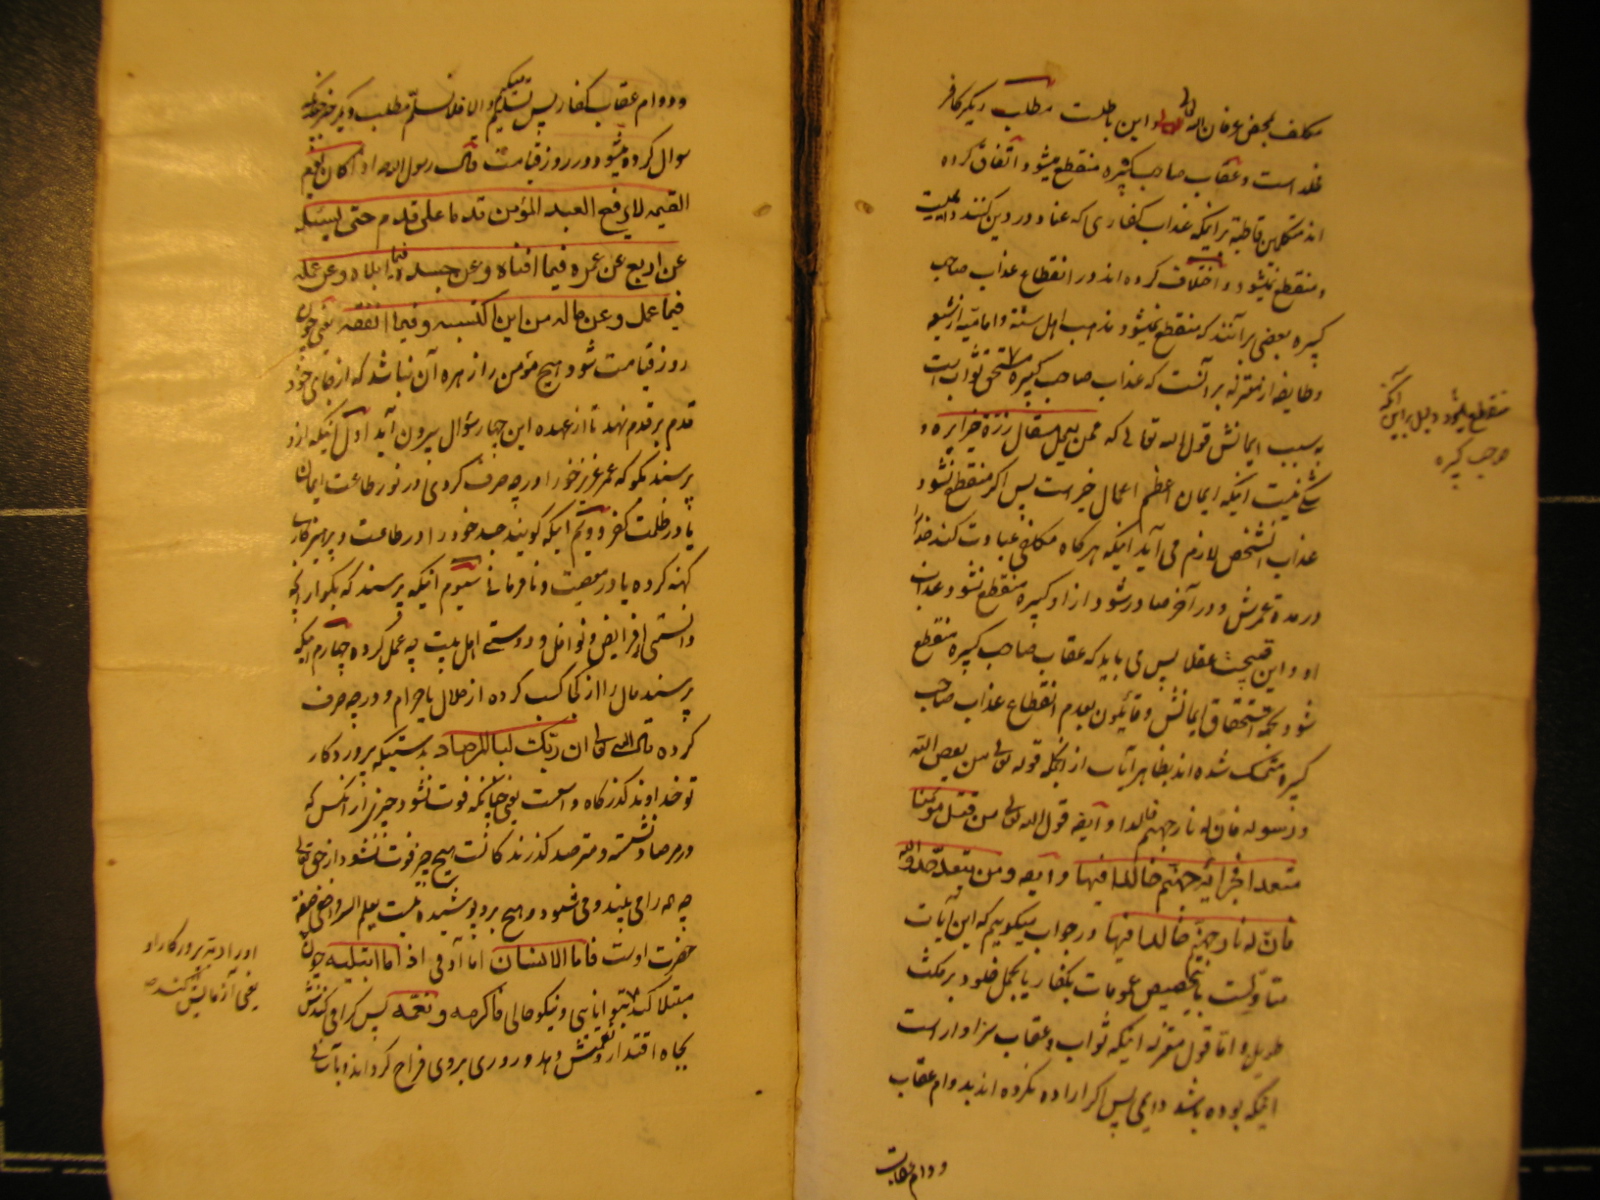 مکلف بمحض عرفان الله تعالی و این باطلست مطلب دیگر کافر
مخلد است و عقاب صاحب کبیره منقطع میشود و اتفاق کرده
اند متکلمین قاطبة بر اینکه عذاب کفاری که عناد در دین کنند دایمیست
و منقطع نمیشود و اختلاف کرده اند در انقطاع عذاب صاحب
کبیره بعضی بر آنند که منقطع نمیشود مذهب اهل سنة و امامیه از شیعه
و طایفه از معتزله بر آنست که عذاب صاحب کبیره مستحق ثوابست
به سبب ایمانش قول الله تعالی که فمن یعمل مثقال ذرة خیرا یره و
شکی نیست اینکه ایمان اعظم اعمال خیر است پس اگر منقطع نشود
عذاب آنشخص لازم می آید اینکه هرکاه مکلفی عبادت کند خدا
در مدة عمرش و در آخر صادر شود از او کبیره منقطع نشود عذاب
او و این قبیحست عقلا پس می باید که عقاب صاحب کبیره منقطع
شود بجهة استحقاق ایمانش و قائیلون بعدم انقطاع عذاب صاحب
کبیره متمسک شده اند بظاهر آیات از آنجمله قوله تعالی من یعص الله
و رسوله فان له نار جهنم خالدا و ایضه قول الله تعالی من قتل مؤمنا
متعمدا فجزائه جهنم خالدا فیها و ایضه و من یتعد حدود الله
فان له نار جهنم خالدا فیها و جواب میکوییم که این آیات
متاولست بتخصیص عمومات بکفار یا بحمل خلود بر مکث
طویل و اما قول معتزله اینکه ثواب و عقاب سزاوار است
اینکه بوده باشد دایمی پس اکر اراده کرده اند بدوام عقاب
و دوام عقاب
منقطع میشود دلیل بر این آنکه
صاحب کبیره
و دوام عقاب کفار پس تسلیم میکنیم و الا فلا نسلم مطلب دیکر
سوال کرده میشود در روز قیامت قال رسول الله اذا کان یوم
القیمه لا یرفع العبد المؤمن قدما علی قدم حتی یسئل
عن اربع عن عمره فیما افناه و عن جسده فیما ابلاه و عن عمله
فیما عمل و عن ماله من این اکتسبه و فیما انفقه یعنی چون
روز قیامت شود هیچ مؤمن را زهره آن نباشد که از جای خود
قدم بر قدم نهد تا از عهده این چهار سؤال بیرون آید اول آنیکه از او
پرسند بکو که عمر عزیز خود را در چه صرف کردی در نور طاعت ایمان
یا در ظلمت کفر دویم اینکه کویند جسد خود را در طاعت و پرهیزکاری
کهنه کرده یا در معصیت و نافرمانی سیوم اینکه پرسند که بکو از آنچه
دانستی از فرایض و نوافل و دوستی اهل بیت چه عمل کرده چهارم اینکه
پرسند مال را از کجا کسب کرده از حلال یا حرام و در چه صرف
کرده قال الله تعالی ان ربک لبالمرصاد بدرستیکه پروردکار
تو خداوند کذرکاه و است یعنی چنانکه فوت نشود چیزی از آنکس که
در مرصاد نشسته و مترصد کذرند کانست هیچ چیز فوت نشود از حق تعالی
چه همه را می بیند و می شنود و هیچ برو پوشیده نیست یعلم السر و اخفی صفة
حضرت اوست فاما الانسان اما آدمی اذا ما ابتلیه چون
مبتلا کند بتوانایی و نیکو حالی فاکرمه و نعمه پس کرامی کندش
بجاه و اقتدار و نعمتش دهد و روزی بروی فراخ کرداند
او را ربه پروردکار او
یعنی آزمایش کندش